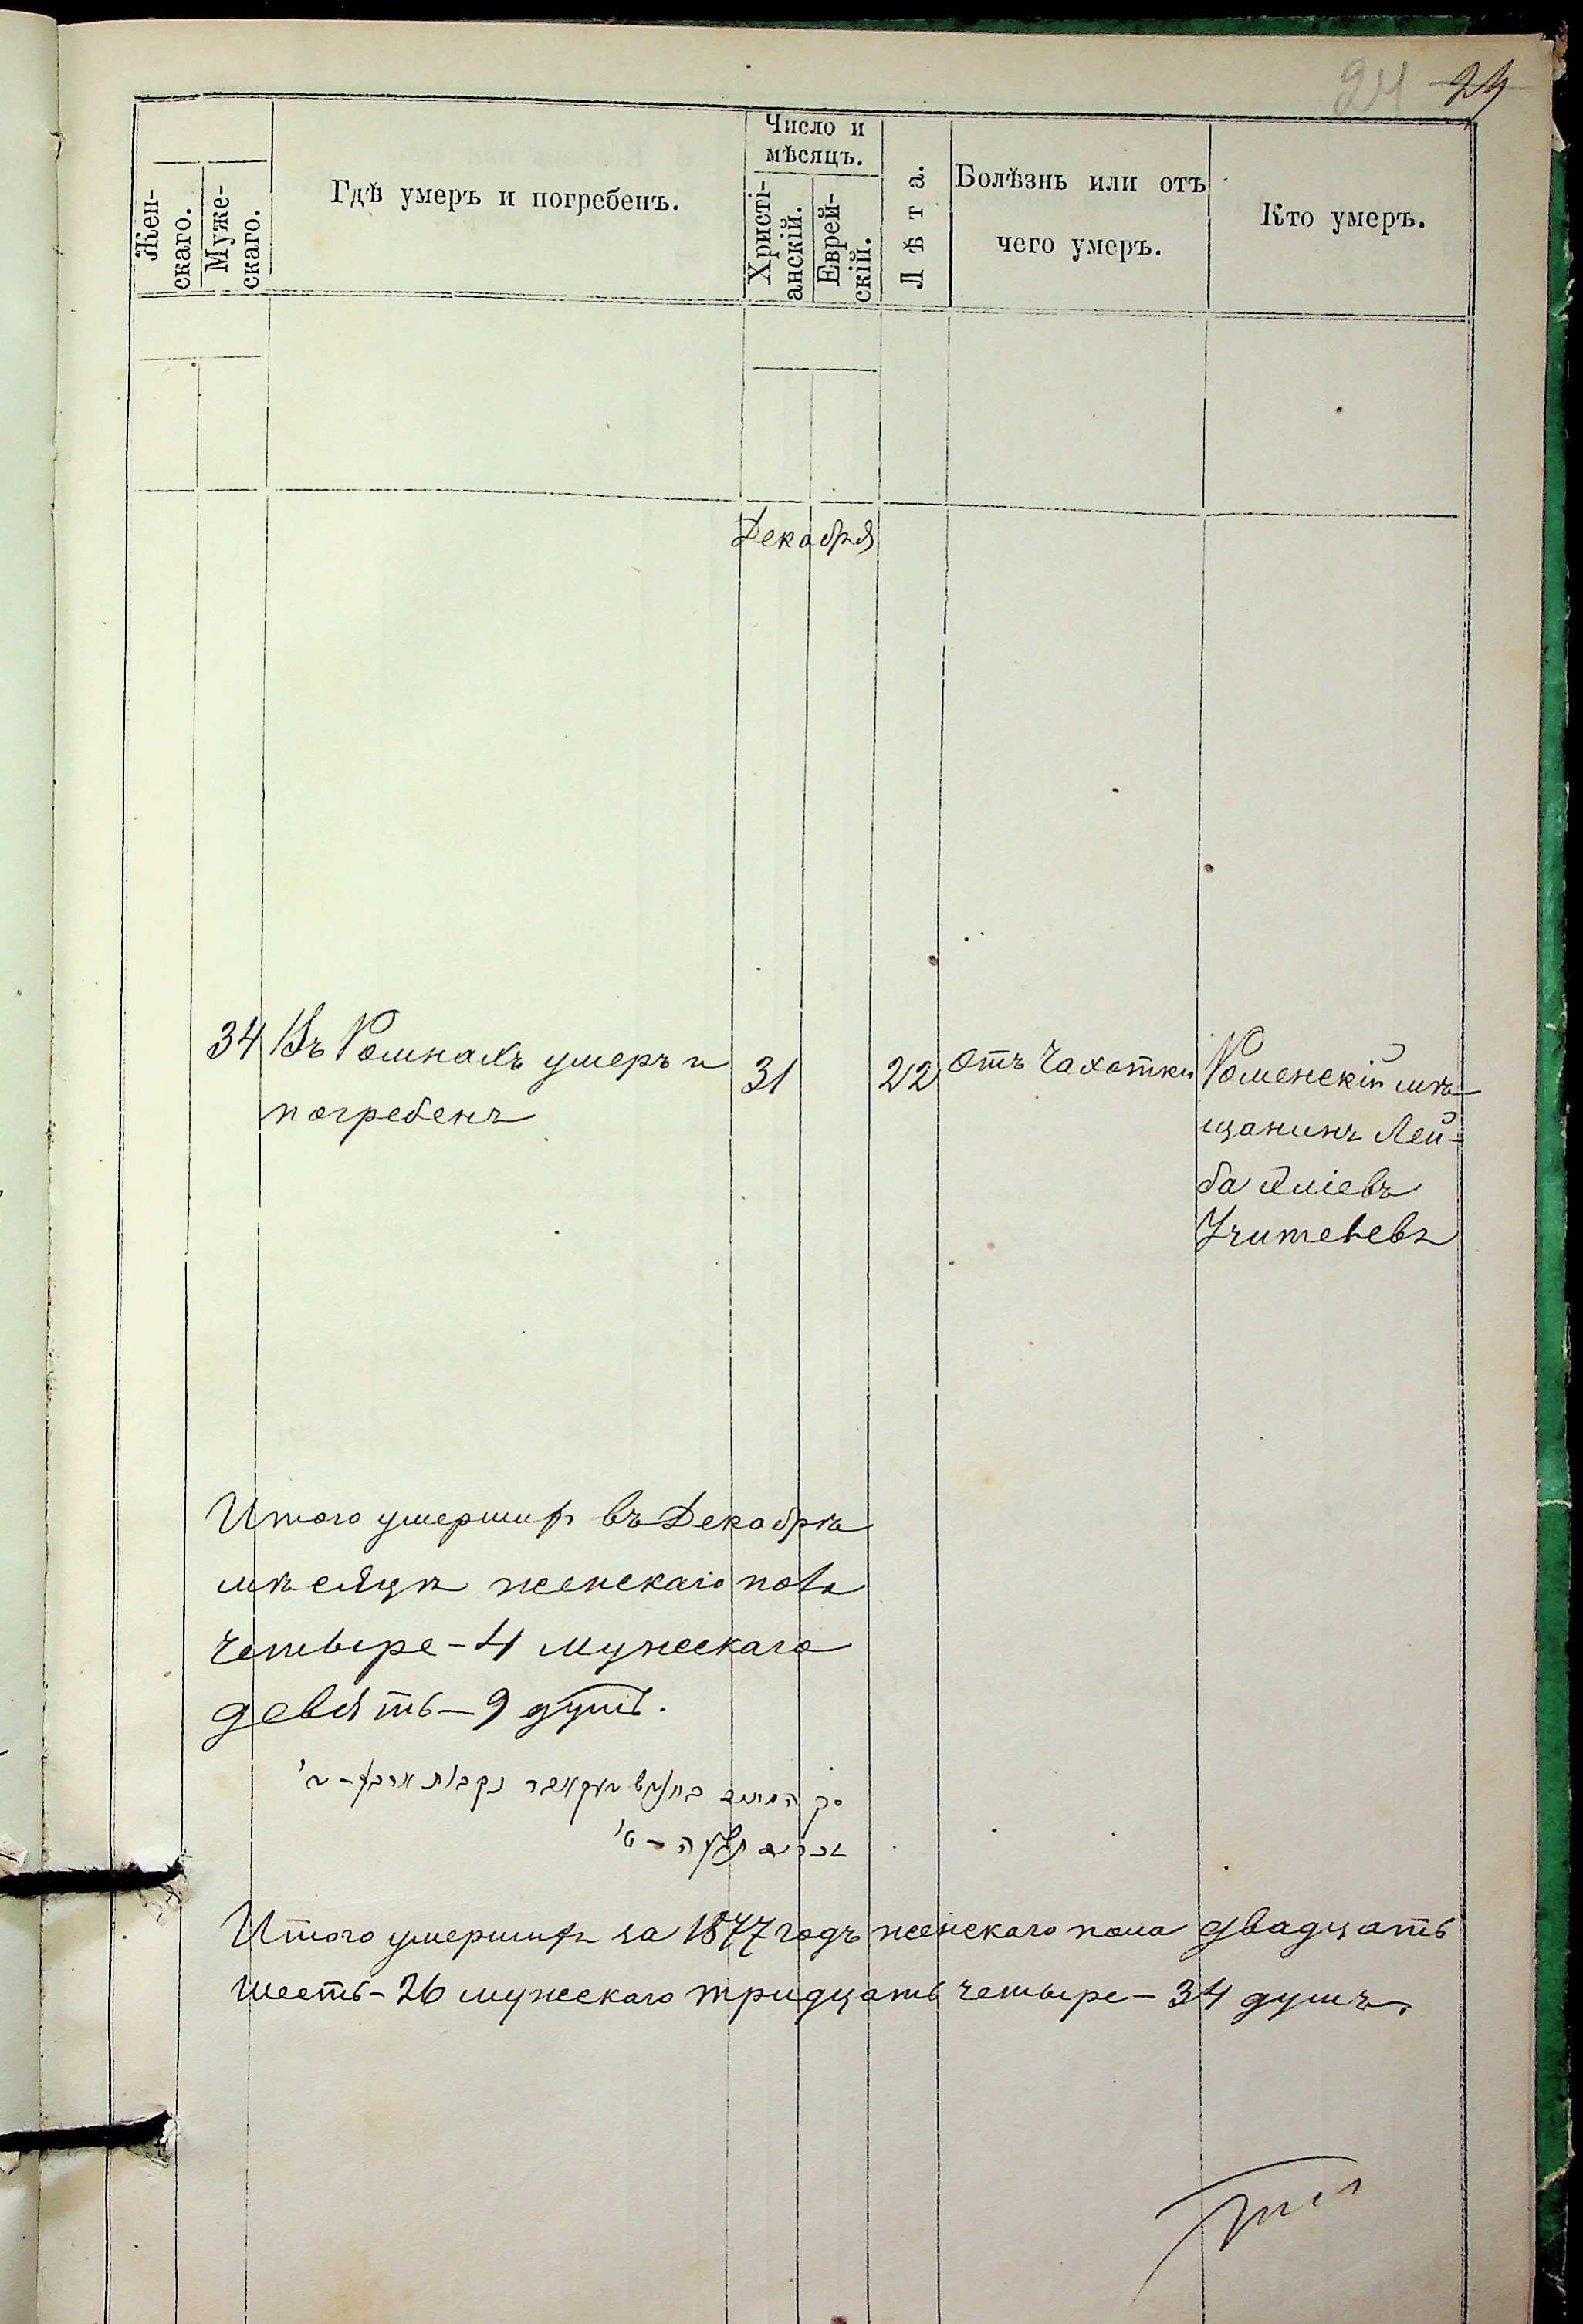 24 24
Жен-
скаго.
Муже-
скаго.
Гдѣ умеръ и погребенъ.
Число и
мѣсяцъ.
Христі-
анскій.
Еврей-
скій.
Лѣта.
Болѣзнь или отъ
чего умеръ.
Кто умеръ.
Декабря
34 Въ Ромнахъ умеръ и 31 22 отъ Чахотки Роменскій мѣ-
погребенъ щанинъ Лей-
ба
Учителевъ
Итого умершихъ въ Декабрѣ
мѣсяцѣ женскаго пола
четыре - 4 мужескаго
девять - 9 душъ.
Итого умершихъ за 1877 годъ женскаго пола двадцать
шесть - 26 мужескаго тридцать четыре - 34 душъ.